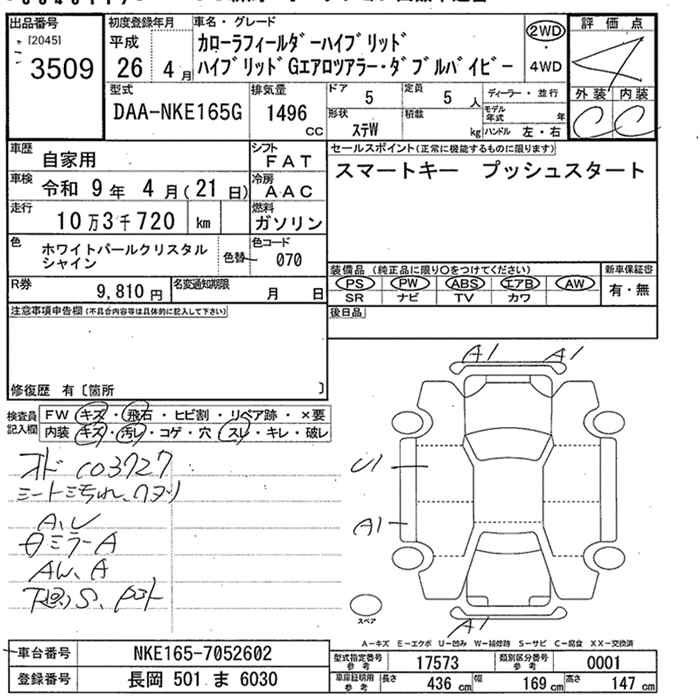 出品番号
[2045]
3509
初度登録年月
平成
26 4月
車名・グレード
カローラフィールダーハイブリッド
ハイブリッドGエアロツアラー・ダブルバイビー
2WD
・
4WD
評価点
4
外装 内装
C C
型式
DAA-NKE165G
排気量
1496
CC
ドア 5
定員 5人
形状 ステW
積載 kg
ディーラー・並行
モデル年式 年
ハンドル 左・右
車歴 自家用
シフト FAT
車検 令和 9年 4月(21日)
冷房 AAC
走行 10万3千720 km
燃料 ガソリン
色 ホワイトパールクリスタル
シャイン
色替
色コード 070
R券 9,810円
名変通知期限 月 日
セールスポイント(正常に機能するものに限ります)
スマートキー プッシュスタート
装備品(純正品に限り○をつけてください)
PS PW ABS エアB AW
SR ナビ TV カワ
新車保証書
有・無
後日品
注意事項申告欄(不具合内容等は具体的に記入して下さい)
修復歴 有〔箇所 〕
検査員
記入欄
FW キズ・飛石・ヒビ割・リペア跡・×要
内装 キズ・汚レ・コゲ・穴・スレ・キレ・破レ
103727
A1 A1
U1
A1
A1
スペア
A-キズ E-エクボ U-凹み W-補修跡 S-サビ C-腐食 XX-交換済
車台番号 NKE165-7052602
登録番号 長岡 501 ま 6030
型式指定番号 参考 17573
類別区分番号 参考 0001
車庫証明用 参考 長さ 436 cm 幅 169 cm 高さ 147 cm